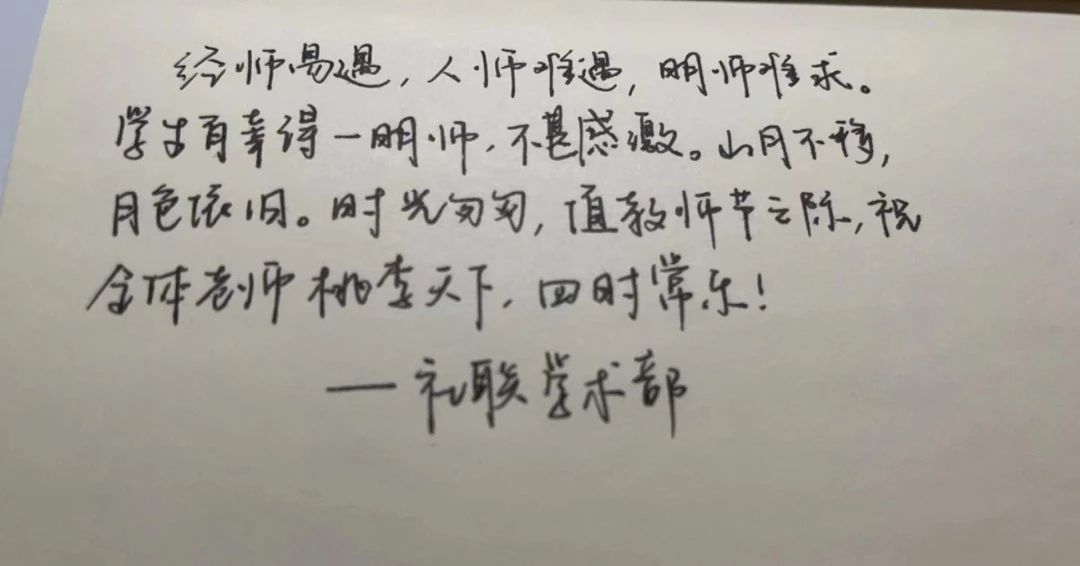 经师易遇，人师难遇，明师难求。
学生有幸得一明师，不甚感激。山月不移，
月色依旧。时光匆匆，值教师节之际，祝
全体老师桃李天下，四时常乐！
——社联学术部